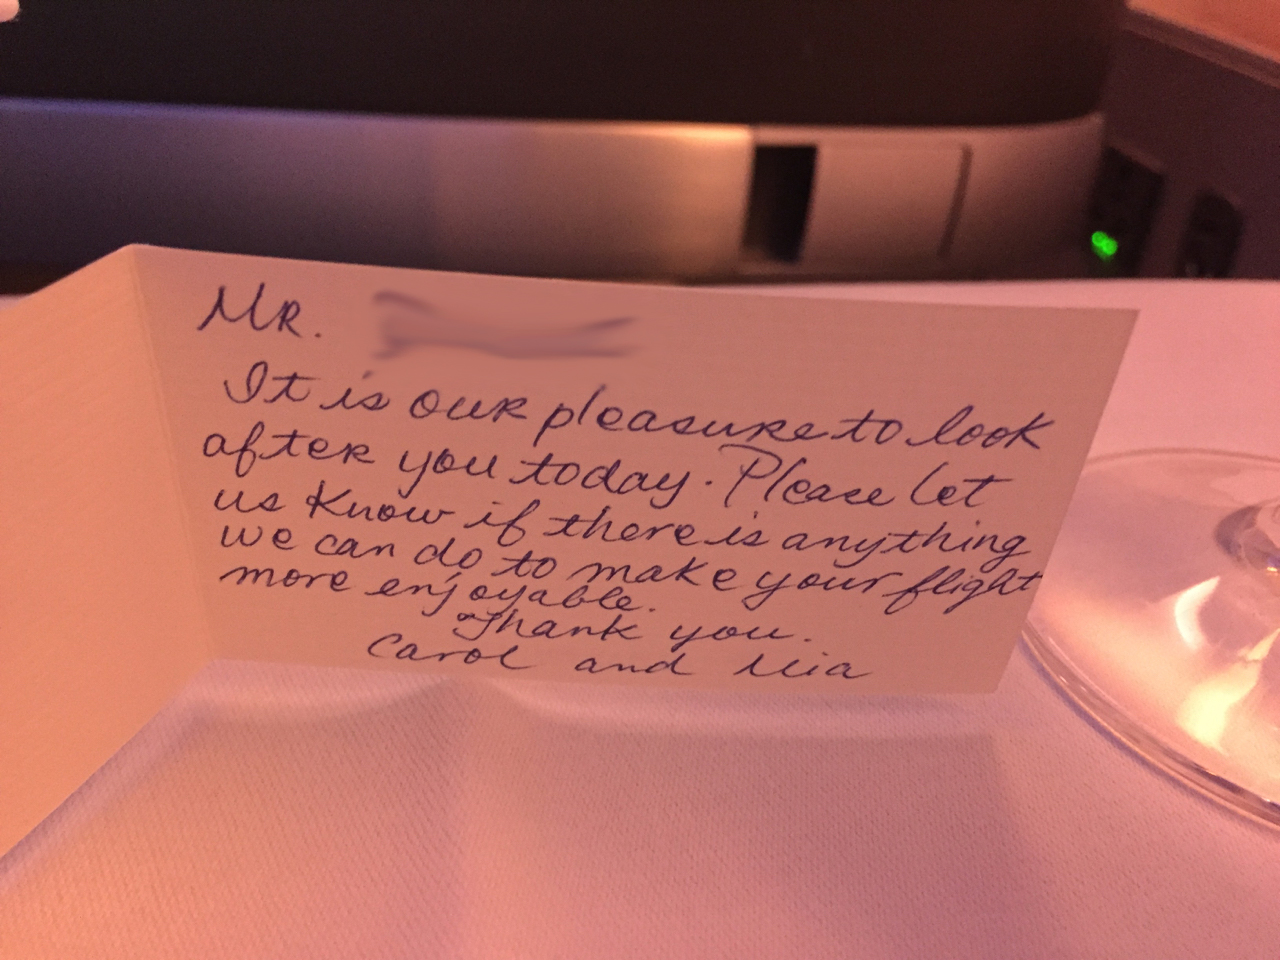 Mr.
It is our pleasure to look
after you today. Please let
us know if there is anything
we can do to make your flight
more enjoyable.
Thank you.
Carol and Mia